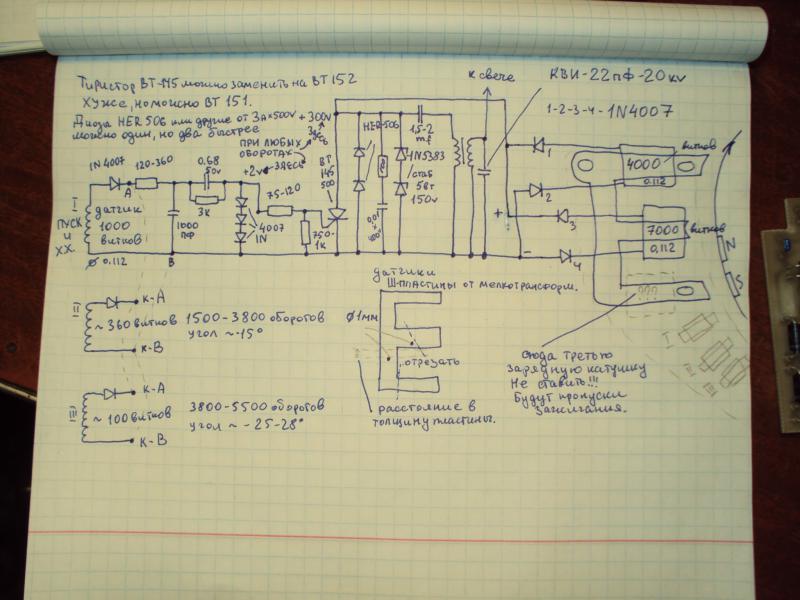 Тиристор ВТ-145 можно заменить на ВТ 152
Хуже, но можно ВТ 151.
Диоды HER 506 или другие от 3А×500v
можно один, но два быстрее
+300v
ПРИ ЛЮБЫХ
ОБОРОТАХ
здесь
+2v
здесь
К свече
КВИ-22пф-20кv
1-2-3-4-1N4007
1N4007
120-360
0.68
50v
3К
1000
пф
4007
1N
75-120
750-
1К
ВТ
145
500
HER-506
1,5-2
mf
1N5383
стаб
5вт
150v
I
ПУСК
и
ХХ.
датчик
1000
витков
Ø 0.112
А
В
+
-
1
2
3
4
4000
витков
0.112
7000
витков
0.112
N
S
II
~360 витков
К-А
К-В
1500-3800 оборотов
угол ~-15°
III
~100 витков
К-А
К-В
3800-5500 оборотов
угол ~-25-28°
датчики
Ш-пластины от мелкотрансформ.
Ø1мм
отрезать
расстояние в
толщину пластины.
сюда третью
зарядную катушку
Не ставить!!!
Будут пропуски
зажигания.
I
II
III